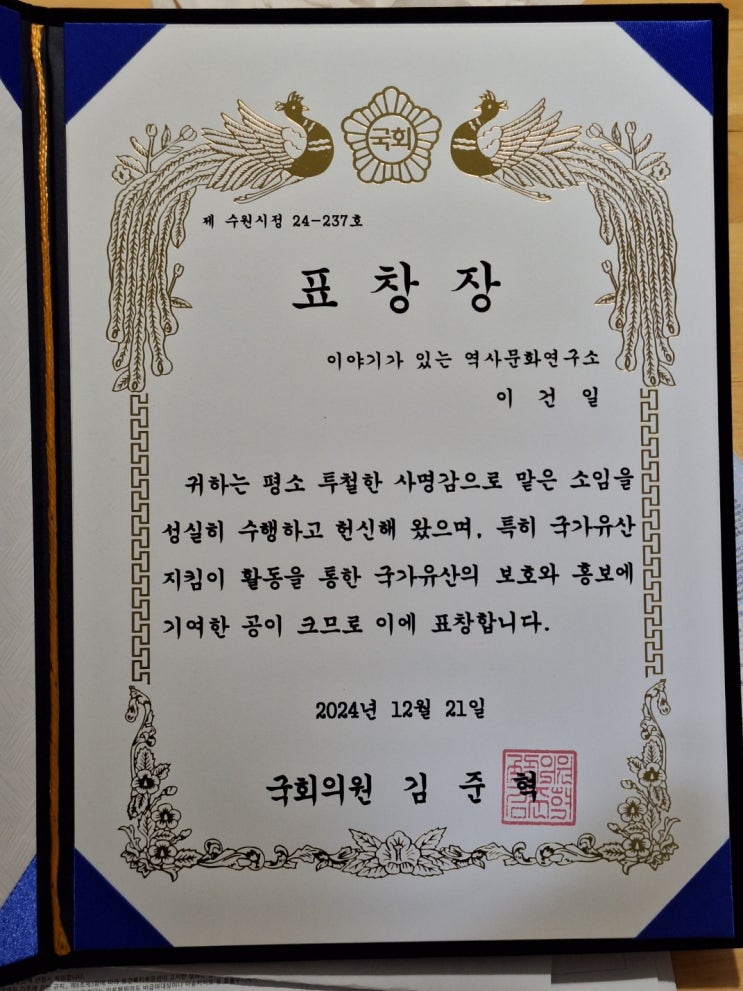 국회
제 수원시정 24-237호
표창장
이야기가 있는 역사문화연구소
이 건 일
귀하는 평소 투철한 사명감으로 맡은 소임을
성실히 수행하고 헌신해 왔으며, 특히 국가유산
지킴이 활동을 통한 국가유산의 보호와 홍보에
기여한 공이 크므로 이에 표창합니다.
2024년 12월 21일
국회의원 김 준 혁